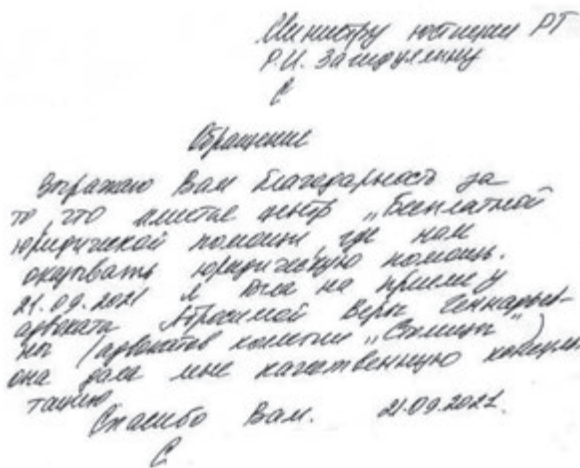 Министру юстиции РТ
Р.И. Загидуллину
С
Обращение
Выражаю Вам благодарность за
то, что имеется центр „Бесплатной
юридической помощи, где нам
оказывать юридическую помощь.
21.09.2021 я была на приеме у
адвоката Веры Геннадьев-
ны (адвокатов коллегии „Столица")
она дала мне качественную консуль
тацию
Спасибо Вам. 21.09.2021.
С